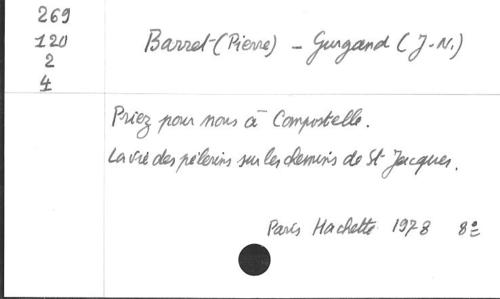 269
120
2
4
Barret (Pierre) - Gurgand (J-N.)
Priez pour nous à Compostelle.
La vie des pèlerins sur les chemins de St Jacques.
Paris Hachette 1978 8º